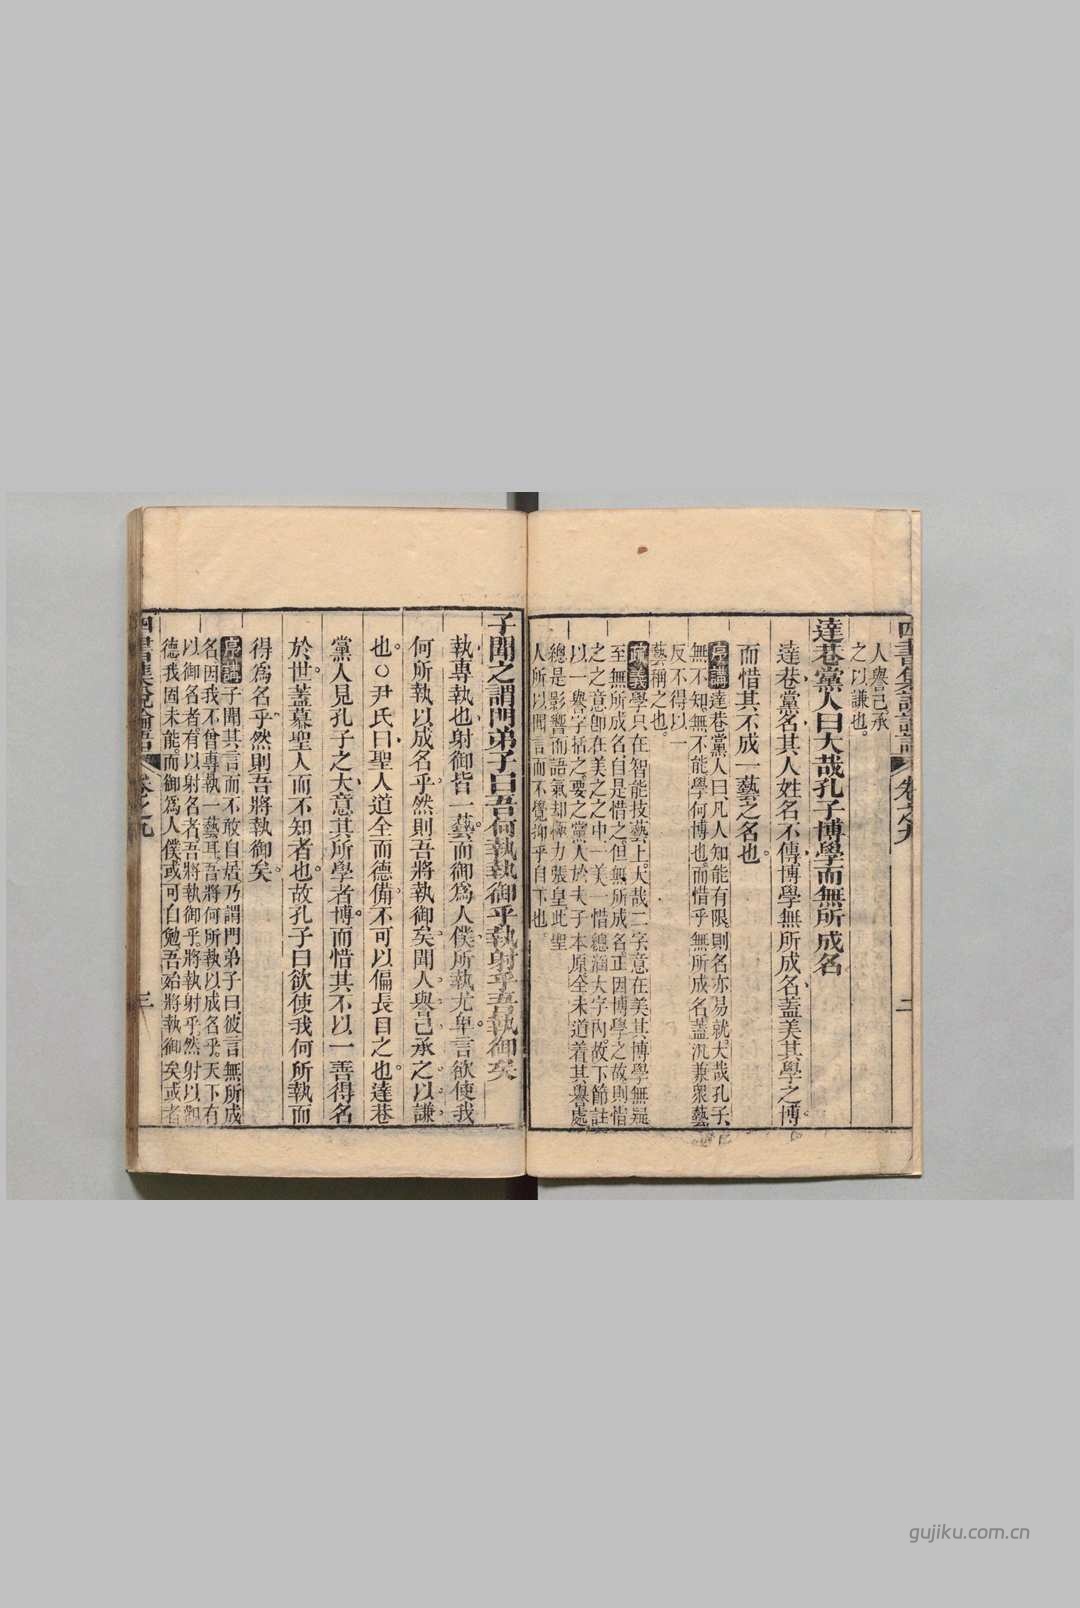 人譽己承
之以謙也。
達巷黨人曰大哉孔子博學而無所成名
達巷黨名其人姓名不傳博學無所成名蓋美其學之博
而惜其不成一藝之名也。
序講達巷黨人曰凡人知能有限則名亦易就大哉孔子
無不知無不能學何博也。而惜乎無所成名蓋汎兼眾藝
反不得以一
藝稱之也。
疏義學只在智能技藝上。大哉二字意在美其博學無疑
至無所成名自是惜之。但無所成名正因博學之故則惜
之之意即在美之之中一美一惜總涵大字內。故下節註
以一譽字括之。要之黨人於夫子本原全未道着其譽處
總是影響而語氣却極力張皇此聖
人所以聞言而不覺抑乎自下也
四書集說論語 卷之九 二
子聞之謂門弟子曰吾何執執御乎執射乎吾執御矣
執專執也射御皆一藝而御為人僕所執尤卑言欲使我
何所執以成名乎。然則吾將執御矣聞人譽己承之以謙
也。○尹氏曰聖人道全而德備不可以偏長目之也。達巷
黨人見孔子之大意其所學者博。而惜其不以一善得名
於世。蓋慕聖人而不知者也。故孔子曰欲使我何所執而
得為名乎。然則吾將執御矣。
序講子聞其言而不敢自居乃謂門弟子曰彼言無所成
名因我不曾專執一藝耳。吾將何所執以成名乎。天下有
以御名者有以射名者吾將執御乎。將執射乎。然射以觀
德我固未能。而御為人僕或可自勉吾殆將執御矣或者
四書集說論語 卷之九 三
gujiku.com.cn